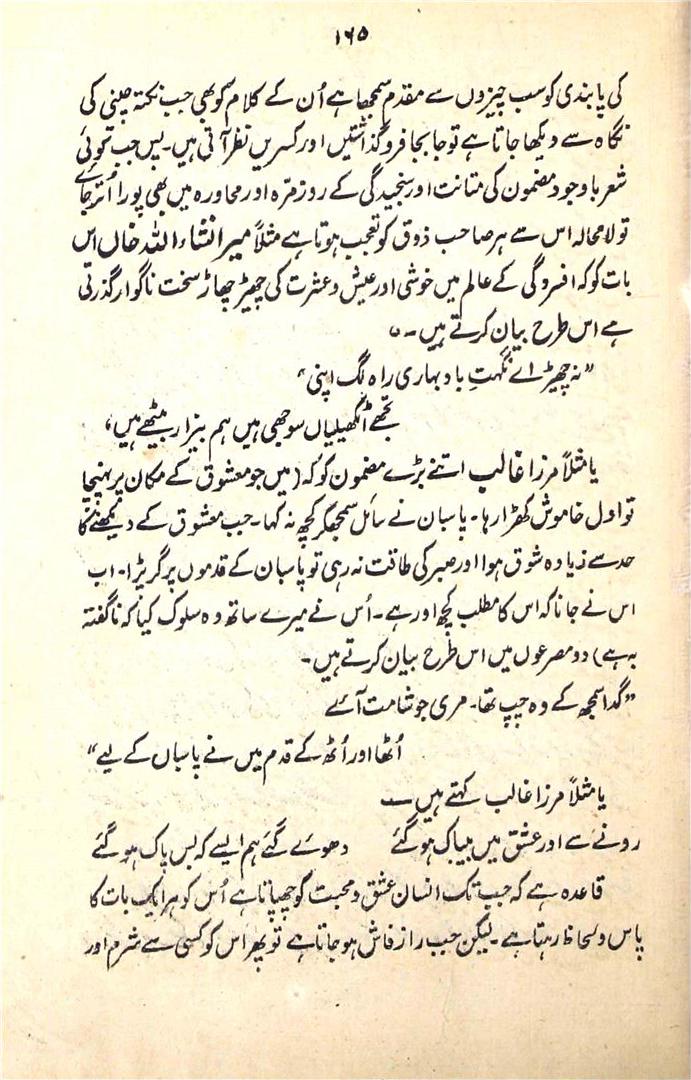 ۱۶۵
کی پابندی کو سب چیزوں سے مقدم سمجھا ہے اُن کے کلام کو بھی جب نکتہ چینی کی
نگاہ سے دیکھا جاتا ہے تو جابجا فروگذاشتیں اور کسریں نظر آتی ہیں۔ پس جب کوئی
شعر باوجود مضمون کی متانت اور سنجیدگی کے روزمرّہ اور محاورہ میں بھی پورا اُتر جائے
تو لامحالہ اس سے ہر صاحب ذوق کو تعجب ہوتا ہے مثلاً میر انشاء اللہ خاں اس
بات کو کہ افسروگی کے عالم میں خوشی اور عیش و عشرت کی چھیڑ چھاڑ سخت ناگوار گذرتی
ہے اس طرح بیان کرتے ہیں۔ ؎
"نہ چھیڑ اے نکہتِ باد بہاری راہ لگ اپنی"
تجھے اٹھکھیلیاں سوجھی ہیں ہم بیزار بیٹھے ہیں،
یا مثلاً مرزا غالب اتنے بڑے مضمون کو کہ (میں جو معشوق کے مکان پر پہنچا
تو اول خاموش کھڑا رہا۔ پاسبان نے سائل سمجھکر کچھ نہ کہا۔ جب معشوق کے دیکھنے کا
حد سے زیادہ شوق ہوا اور صبر کی طاقت نہ رہی تو پاسبان کے قدموں پر گر پڑا۔ اب
اس نے جانا کہ اس کا مطلب کچھ اور ہے۔ اُس نے میرے ساتھ وہ سلوک کیا کہ ناگفتہ
بہ ہے) دو مصرعوں میں اس طرح بیان کرتے ہیں۔
"گدا سمجھ کے وہ چپ تھا۔ مری جو شامت آئے
اُٹھا اور اُٹھ کے قدم میں نے پاسباں کے لیے"
یا مثلاً مرزا غالب کہتے ہیں ؎
رونے سے اور عشق میں بیباک ہو گئے دھوئے گئے ہم ایسے کہ بس پاک ہو گئے
قاعدہ ہے کہ جب تک انسان عشق و محبت کو چھپاتا ہے اُس کو ہر ایک بات کا
پاس و لحاظ رہتا ہے۔ لیکن جب راز فاش ہو جاتا ہے تو پھر اس کو کسی سے شرم اور